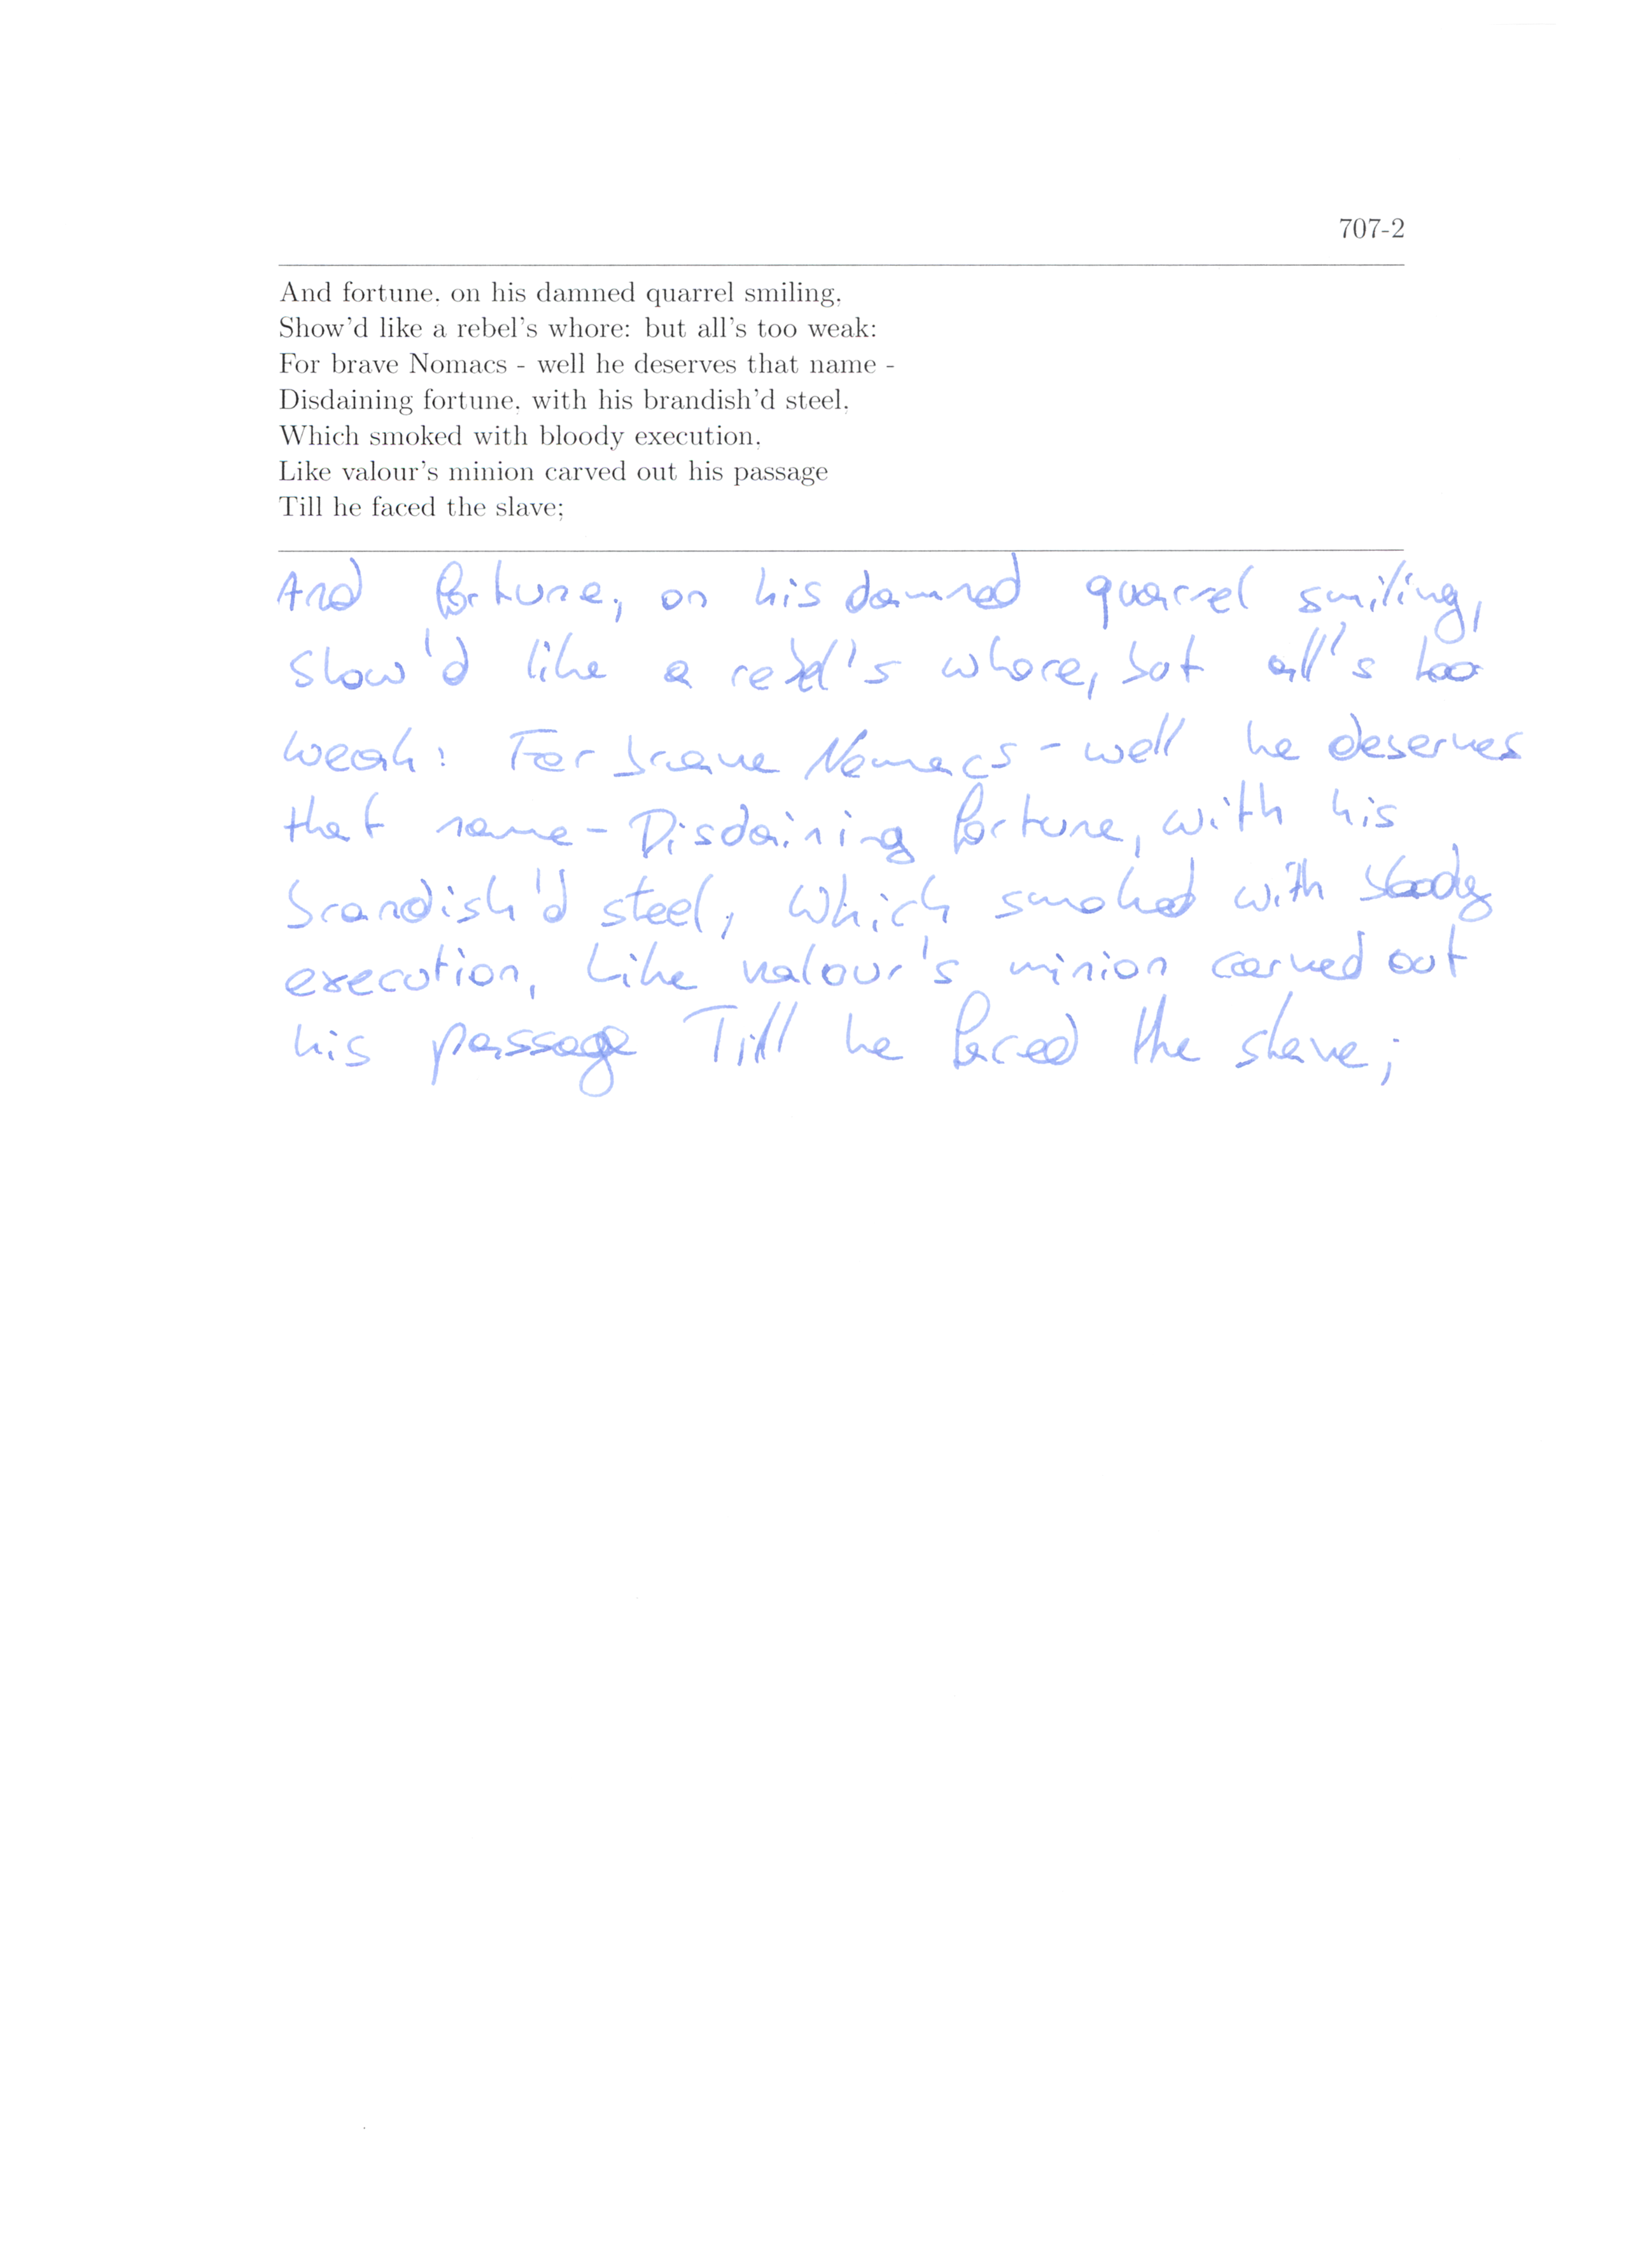 707-2
And fortune, on his damned quarrel smiling,
Show'd like a rebel's whore: but all's too weak:
For brave Nomacs - well he deserves that name -
Disdaining fortune, with his brandish'd steel,
Which smoked with bloody execution,
Like valour's minion carved out his passage
Till he faced the slave;
And fortune, on his damned quarrel smiling,
Show'd like a rebel's whore, but all's too
weak: For brave Nomacs - well he deserves
that name - Disdaining fortune, with his
brandish'd steel, Which smoked with bloody
execution, Like valour's minion carved out
his passage Till he faced the slave;